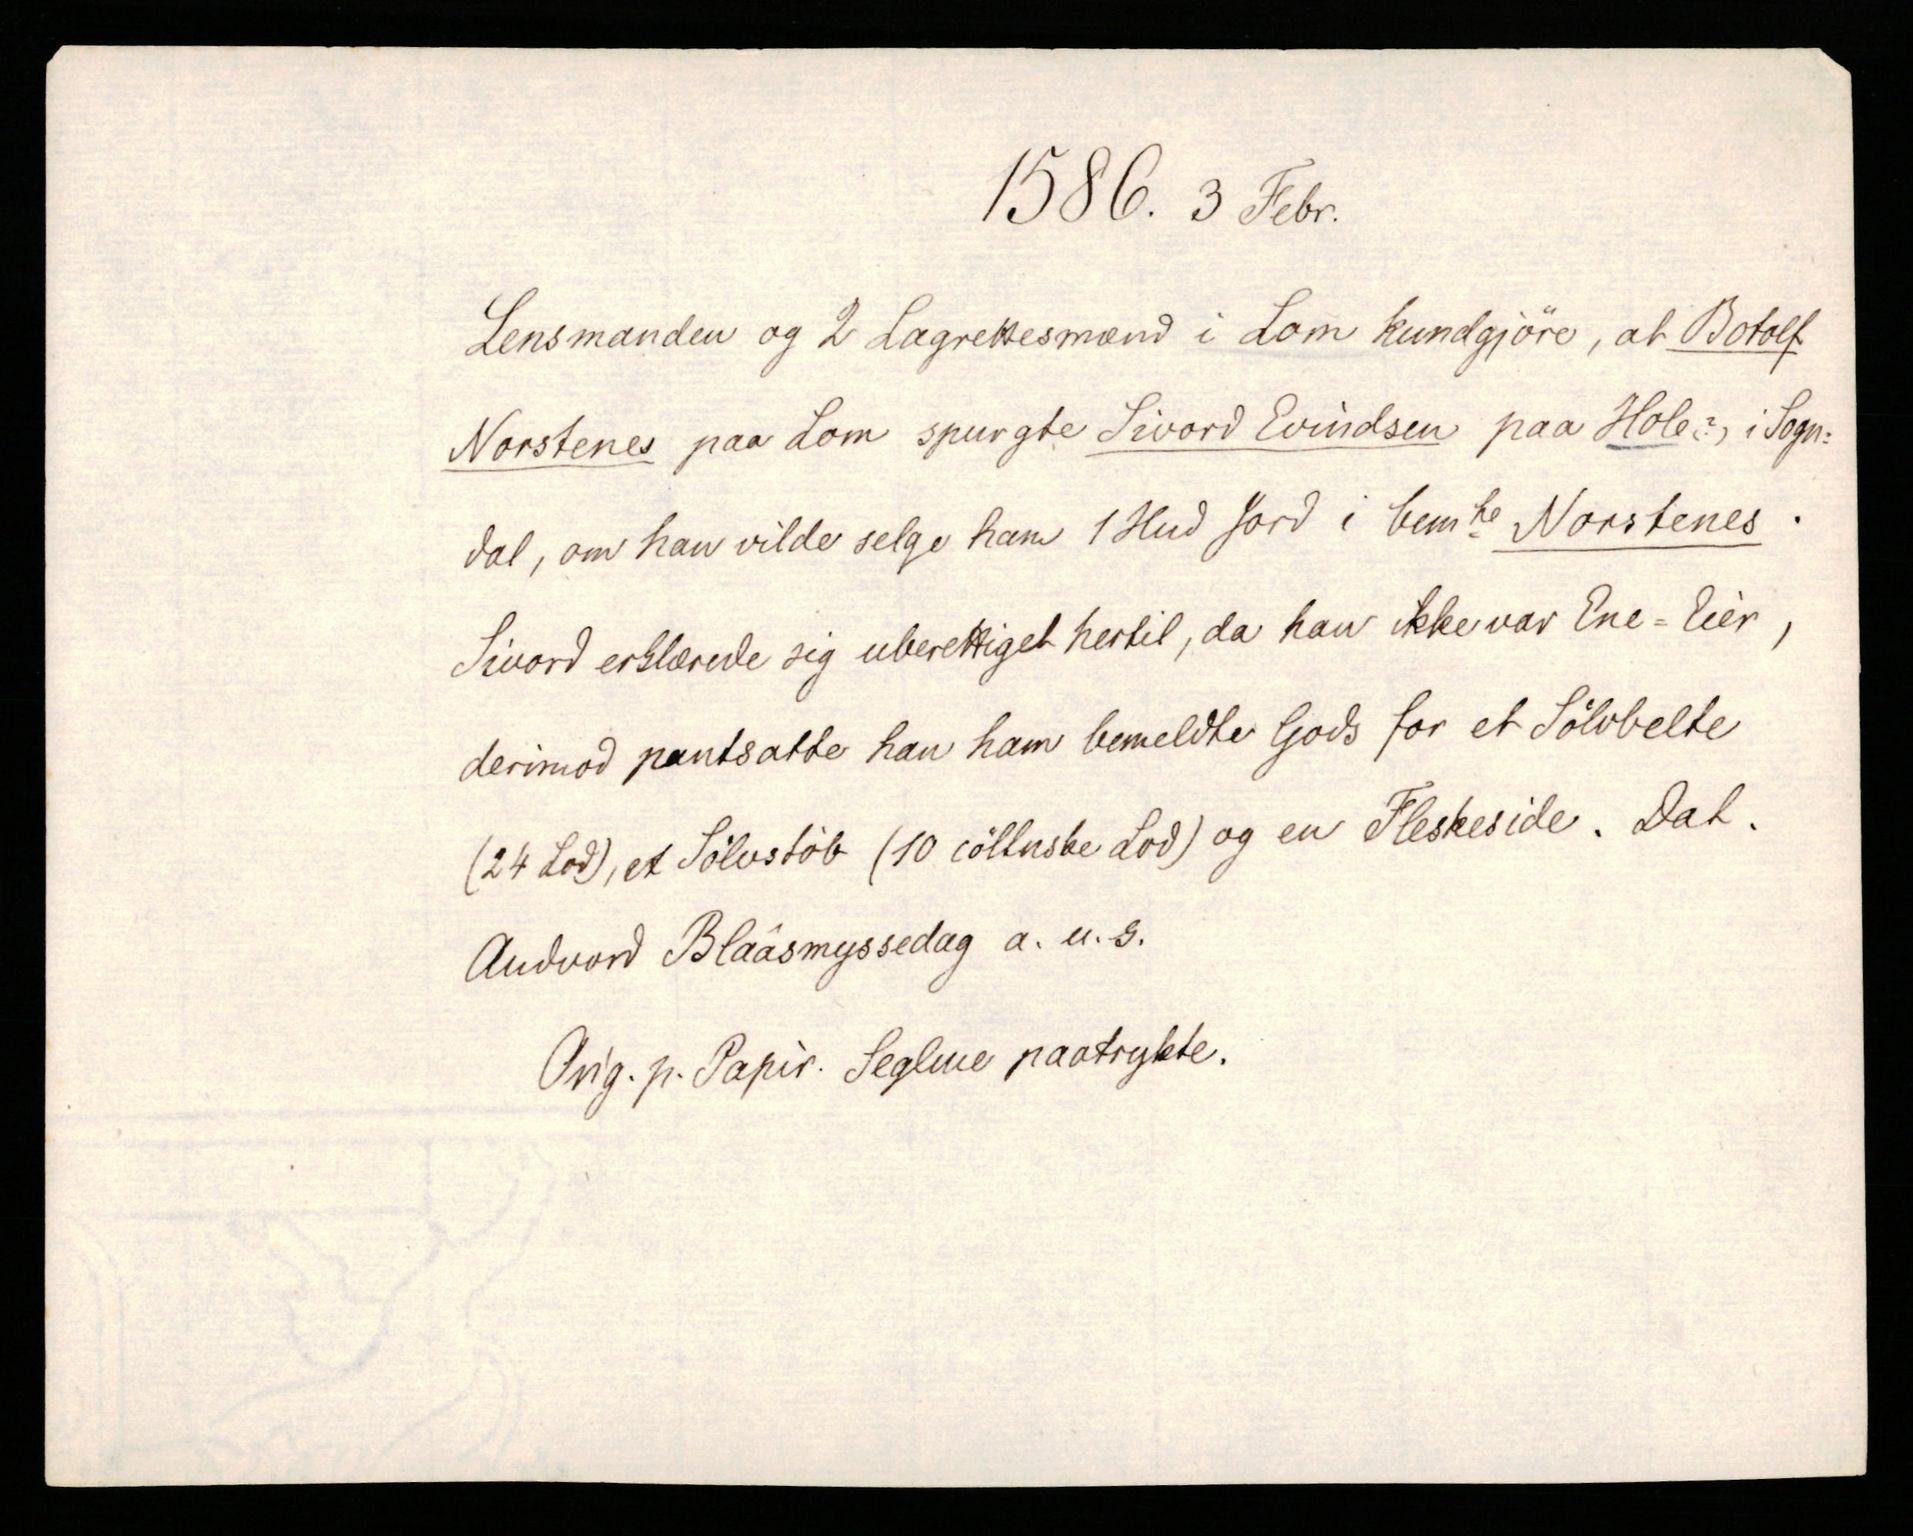 1586. 3 Febr.
Lensmanden og 2 Lagrettesmænd i Lom kundgjöre, at Botolf
Norstenes paa Lom spurgte Sivord Evindsen paa Hole(?), i Sogn=
dal, om han vilde selge ham 1 Hud Jord i bemte Norstenes.
Sivord erklærede sig uberettiget hertil, da han ikke var Ene=Eier,
derimod pantsatte han ham bemeldte Gods for et Sölvbelte
(24 Lod), et Sölvstöb (10 cöllnske Lod) og en Fleskeside. Dat.
Andvord Blaâsmyssedag a. u. s.
Orig. p. Papir. Seglene paatrykte.